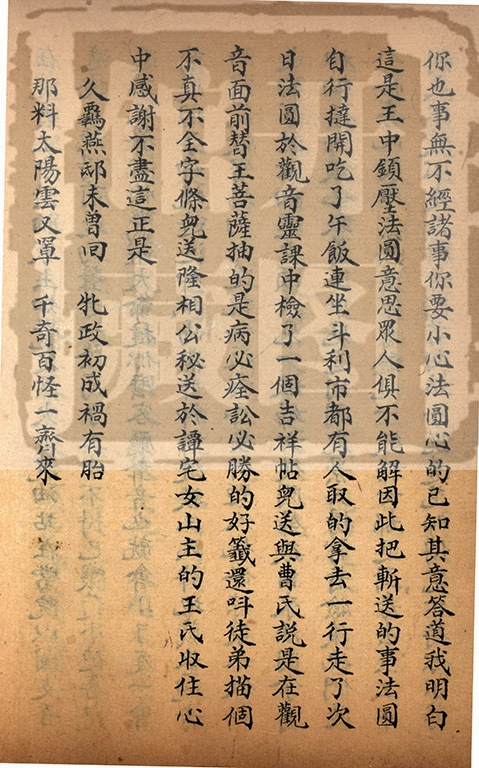 你也事無不經諸事你要小心法圓心的已知其意答道我明白
這是王中鎮壓法圓意思眾人俱不能解因此把斬送的事法圓
自行撻開吃了午飯連坐斗利市都有人取的拿去一行走了次
日法圓於觀音靈課中檢了一個吉祥帖兒送與曹氏說是在觀
音面前替王菩薩抽的是病必痊訟必勝的好籤還呌徒弟描個
不真不全字條兒送隆相公秘送於譚宅女山主的王氏收住心
中感謝不盡這正是
久羈燕邸未曾回 牝政初成禍有胎
那料太陽雲又罩 千奇百怪一齊來